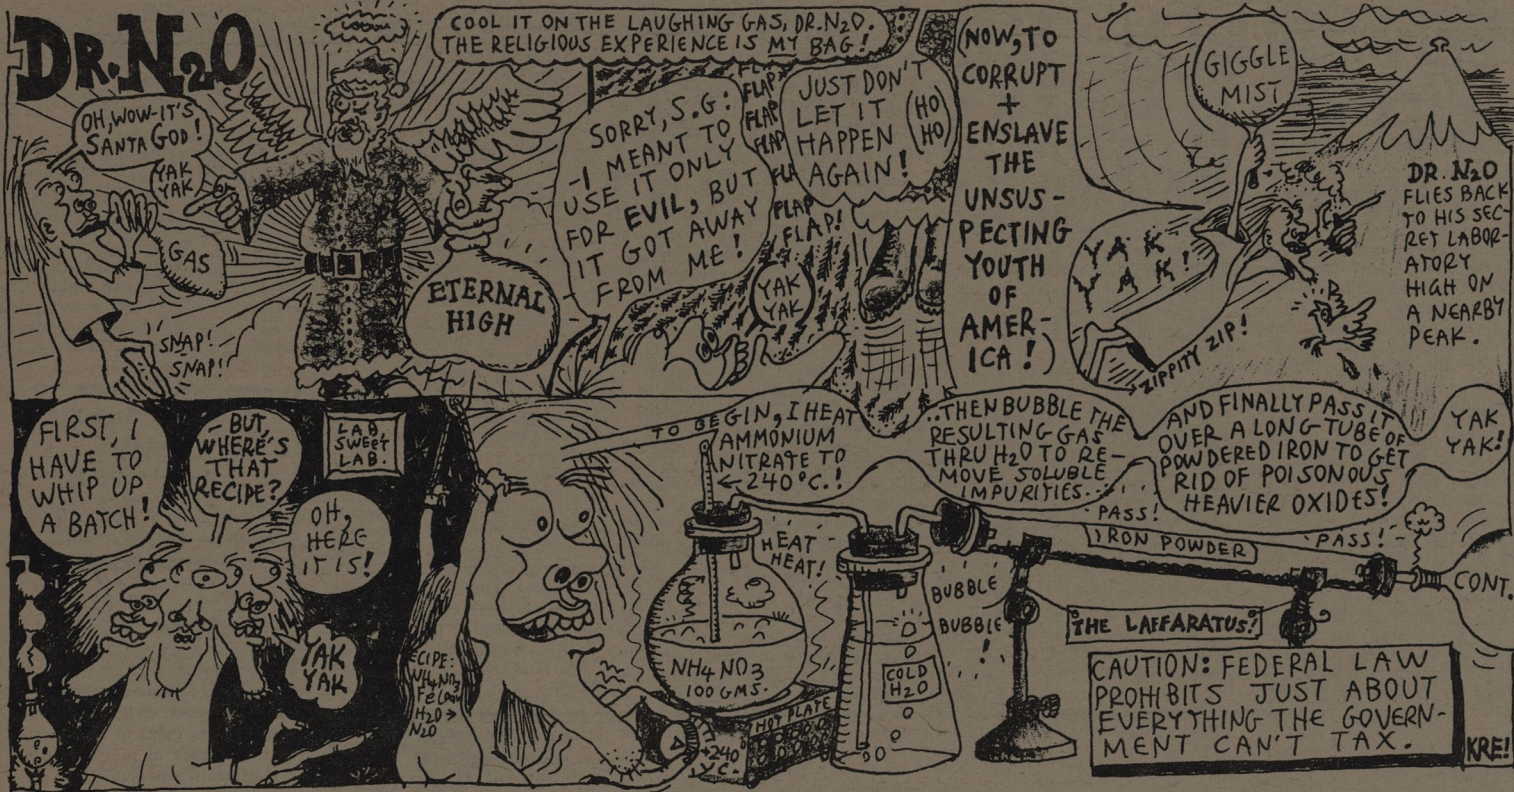 DR. N2O
OH, WOW-IT'S
SANTA GOD!
YAK
YAK
GAS
SNAP!
SNAP!
COOL IT ON THE LAUGHING GAS, DR. N2O.
THE RELIGIOUS EXPERIENCE IS MY BAG!
ETERNAL
HIGH
SORRY, S.G:
-I MEANT TO
USE IT ONLY
FOR EVIL, BUT
IT GOT AWAY
FROM ME!
FLAP
FLAP
FLAP
FLAP
FLAP
FLAP!
YAK
YAK
JUST DON'T
LET IT
HAPPEN
AGAIN!
(HO
HO)
(NOW, TO
CORRUPT
+
ENSLAVE
THE
UNSUS-
PECTING
YOUTH
OF
AMER-
ICA!)
GIGGLE
MIST
YAK!
YAK!
ZIPPITY ZIP!
DR. N2O
FLIES BACK
TO HIS SEC-
RET LABOR-
ATORY
HIGH ON
A NEARBY
PEAK.
FIRST, I
HAVE TO
WHIP UP
A BATCH!
-BUT,
WHERE'S
THAT
RECIPE?
LAB
SWEET
LAB!
OH,
HERE
IT IS!
YAK
YAK
ECIPE:
NH4NO3
H2O→
N2O
TO BEGIN, I HEAT
AMMONIUM
NITRATE TO
←240°C.!
HEAT-
HEAT!
NH4NO3
100 GMS.
HOT PLATE
→240
°C.
...THEN BUBBLE THE
RESULTING GAS
THRU H2O TO RE-
MOVE SOLUBLE
IMPURITIES...
COLD
H2O
BUBBLE
BUBBLE
!
AND FINALLY PASS IT
OVER A LONG TUBE OF
POWDERED IRON TO GET
RID OF POISONOUS
HEAVIER OXIDES!
YAK
YAK!
PASS!
IRON POWDER
PASS!
CONT.
THE LAFFARATUS!
CAUTION: FEDERAL LAW
PROHIBITS JUST ABOUT
EVERYTHING THE GOVERN-
MENT CAN'T TAX.
KRE!